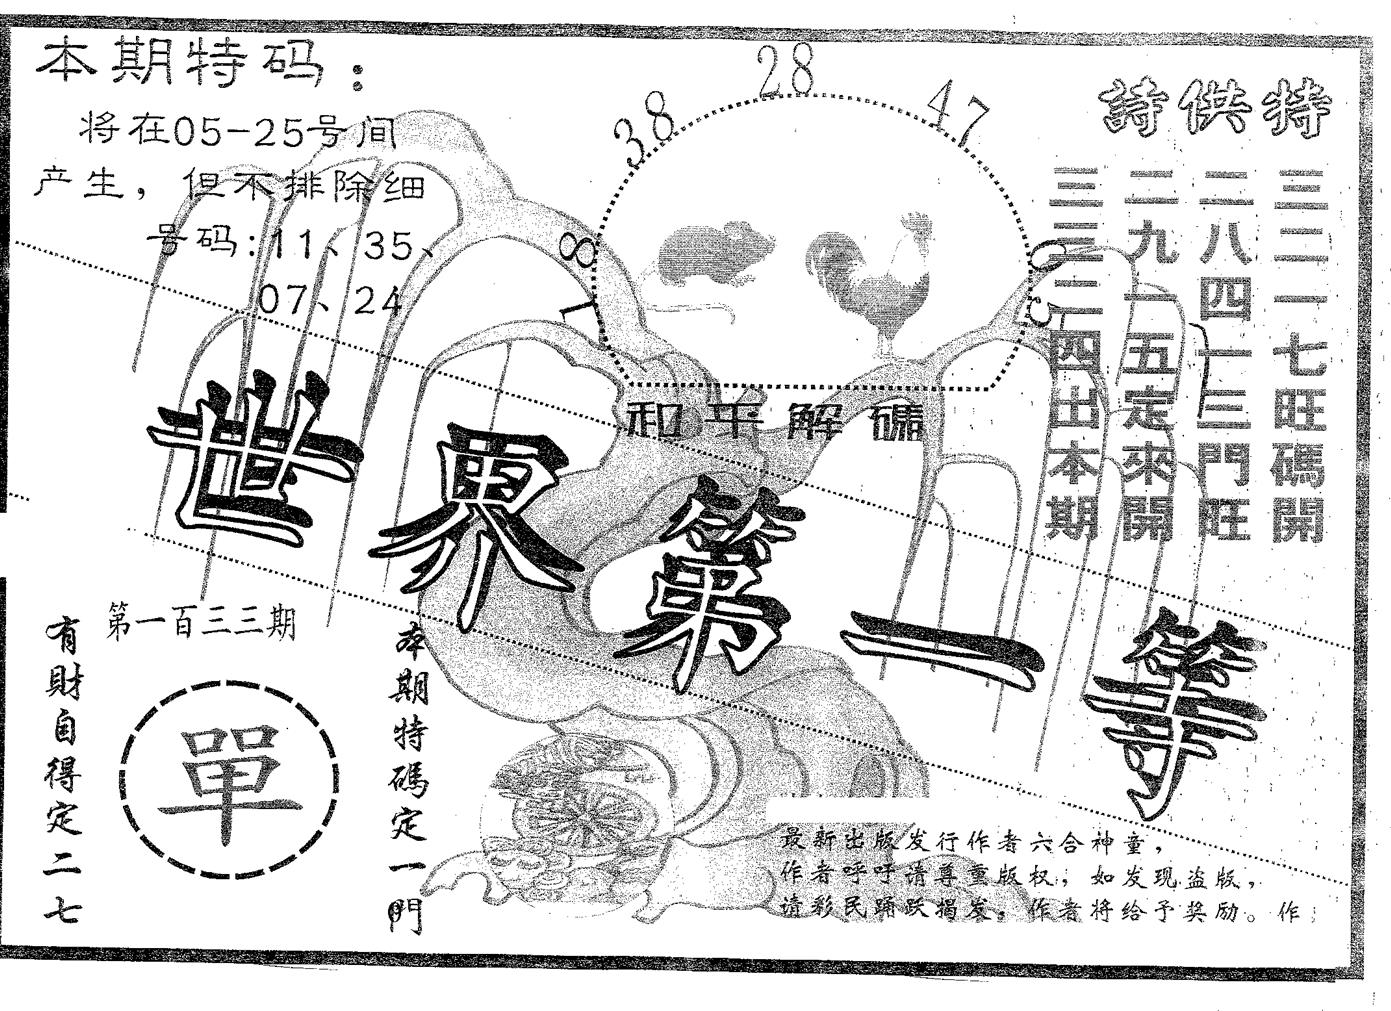 本期特码：
将在05-25号间
产生，但不排除细
号码:11、35、
07、24
18
38
28
47
03
和平解礦
特供詩
三三一七旺碼開
二八四一三門旺
二九一五定來開
三三二四出本期
世界第一等
第一百三三期
有財自得定二七
單
本期特碼定一門
最新出版发行作者六合神童，
作者呼吁请尊重版权，如发现盗版，
请彩民踊跃揭发，作者将给予奖励。作